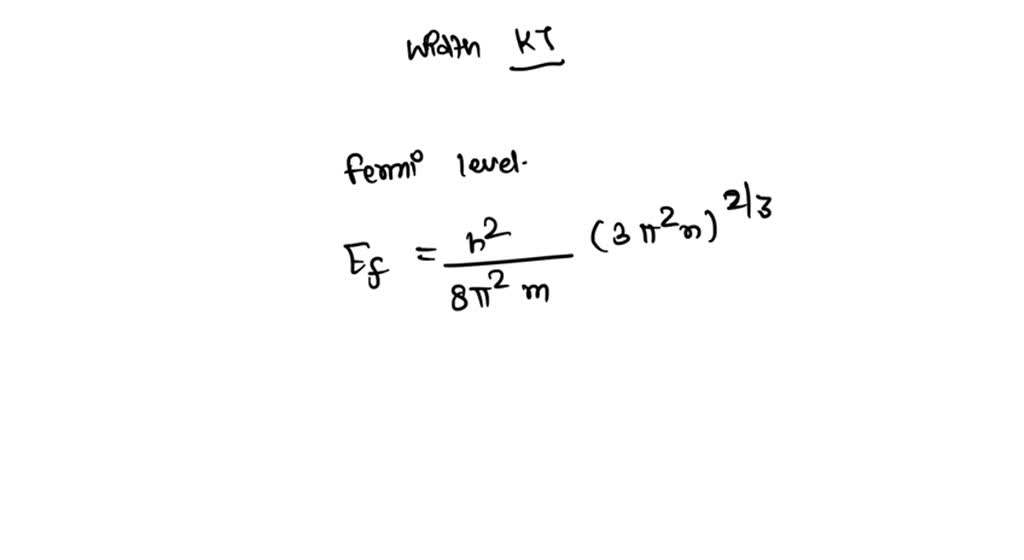 width KT
fermi level.
Ef = h² / 8π² m (3π²n)^2/3